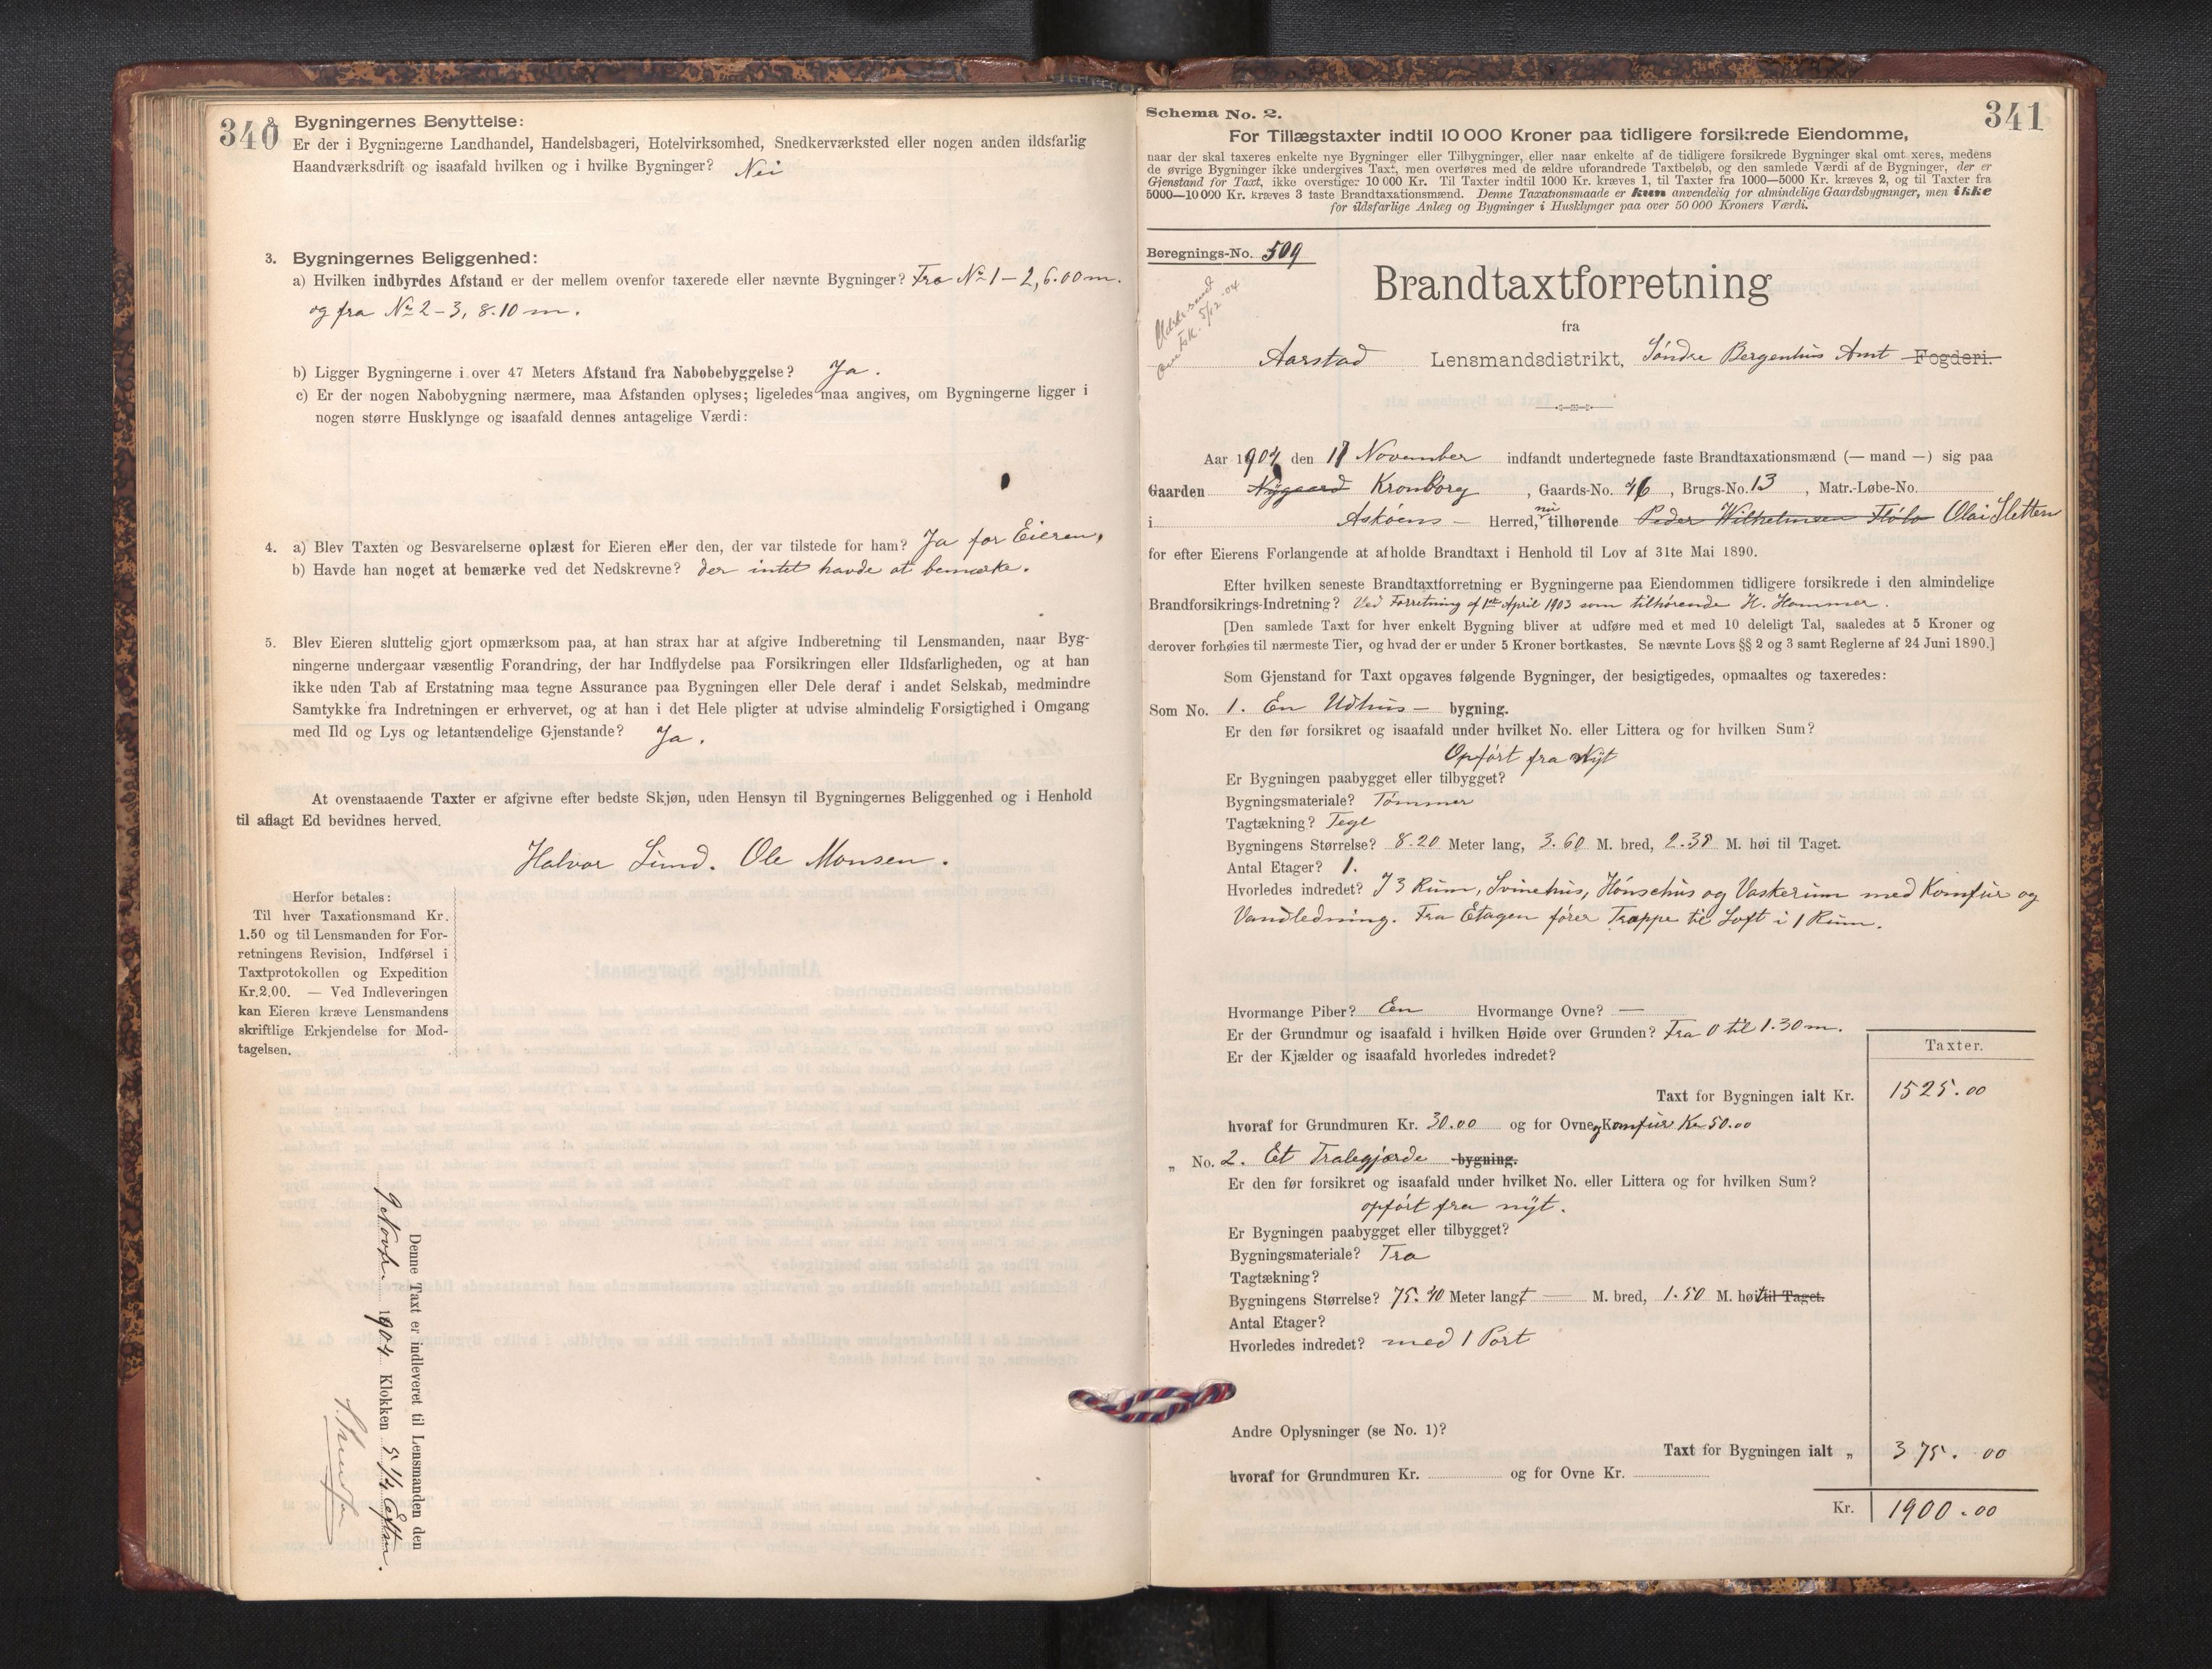 340
2. Bygningernes Benyttelse:
Er der i Bygningerne Landhandel, Handelsbageri, Hotelvirksomhed, Snedkerværksted eller nogen anden ildsfarlig
Haandværksdrift og isaafald hvilken og i hvilke Bygninger? Nei
3. Bygningernes Beliggenhed:
a) Hvilken indbyrdes Afstand er der mellem ovenfor taxerede eller nævnte Bygninger? Fra No 1 – 2, 6.00 m.
og fra No 2 – 3, 8.10 m.
b) Ligger Bygningerne i over 47 Meters Afstand fra Nabobebyggelse? Ja.
c) Er der nogen Nabobygning nærmere, maa Afstanden oplyses; ligeledes maa angives, om Bygningerne ligger i
nogen større Husklynge og isaafald dennes antagelige Værdi:
4. a) Blev Taxten og Besvarelserne oplæst for Eieren eller den, der var tilstede for ham? Ja for Eieren,
b) Havde han noget at bemærke ved det Nedskrevne? der intet havde at bemærke.
5. Blev Eieren sluttelig gjort opmærksom paa, at han strax har at afgive Indberetning til Lensmanden, naar Byg-
ningerne undergaar væsentlig Forandring, der har Indflydelse paa Forsikringen eller Ildsfarligheden, og at han
ikke uden Tab af Erstatning maa tegne Assurance paa Bygningen eller Dele deraf i andet Selskab, medmindre
Samtykke fra Indretningen er erhvervet, og at han i det Hele pligter at udvise almindelig Forsigtighed i Omgang
med Ild og Lys og letantændelige Gjenstande? Ja.
At ovenstaaende Taxter er afgivne efter bedste Skjøn, uden Hensyn til Bygningernes Beliggenhed og i Henhold
til aflagt Ed bevidnes herved.
Halvor Lund. Ole Monsen.
Herfor betales:
Til hver Taxationsmand Kr.
1.50 og til Lensmanden for For-
retningens Revision, Indførsel i
Taxtprotokollen og Expedition
Kr.2.00. — Ved Indleveringen
kan Eieren kræve Lensmandens
skriftlige Erkjendelse for Mod-
tagelsen.
Denne Taxt er indleveret til Lensmanden den
9 Novbr. 1904 Klokken 5 1/4 Eftm.
341
Schema No. 2.
For Tillægstaxter indtil 10 000 Kroner paa tidligere forsikrede Eiendomme,
naar der skal taxeres enkelte nye Bygninger eller Tilbygninger, eller naar enkelte af de tidligere forsikrede Bygninger skal omt xeres, medens
de øvrige Bygninger ikke undergives Taxt, men overføres med de ældre uforandrede Taxtbeløb, og den samlede Værdi af de Bygninger, der er
Gjenstand for Taxt, ikke overstiger 10 000 Kr. Til Taxter indtil 1000 Kr. kræves 1, til Taxter fra 1000—5000 Kr. kræves 2, og til Taxter fra
5000—10 000 Kr. kræves 3 faste Brandtaxationsmænd. Denne Taxationsmaade er kun anvendelig for almindelige Gaardsbygninger, men ikke
for ildsfarlige Anlæg og Bygninger i Husklynger paa over 50 000 Kroners Værdi.
Beregnings-No. 509
5/12 04
Brandtaxtforretning
fra
Aarstad Lensmandsdistrikt, Søndre Bergenhus Amt Fogderi.
Aar 1904 den 11 November indfandt undertegnede faste Brandtaxationsmænd (— mand —) sig paa
Gaarden Nygaard Kronborg, Gaards-No. 46, Brugs-No. 13, Matr.-Løbe-No.
i Askøens – Herred, nu tilhørende Peder Wilhelmsen Fløle Olai Sletten
for efter Eierens Forlangende at afholde Brandtaxt i Henhold til Lov af 31te Mai 1890.
Efter hvilken seneste Brandtaxtforretning er Bygningerne paa Eiendommen tidligere forsikrede i den almindelige
Brandforsikrings-Indretning? Ved Forretning af 1ste April 1903 som tilhørende H. Hammer.
[Den samlede Taxt for hver enkelt Bygning bliver at udføre med et med 10 deleligt Tal, saaledes at 5 Kroner og
derover forhøies til nærmeste Tier, og hvad der er under 5 Kroner bortkastes. Se nævnte Lovs §§ 2 og 3 samt Reglerne af 24 Juni 1890.]
Som Gjenstand for Taxt opgaves følgende Bygninger, der besigtigedes, opmaaltes og taxeredes:
Som No. 1. En Udhus – bygning.
Er den før forsikret og isaafald under hvilket No. eller Littera og for hvilken Sum?
Opført fra Nyt
Er Bygningen paabygget eller tilbygget?
Bygningsmateriale? Tømmer
Tagtækning? Tegl
Bygningens Størrelse? 8.20 Meter lang, 3.60 M. bred, 2.38 M. høi til Taget.
Antal Etager? 1.
Hvorledes indredet? I 3 Rum, Svinehus, Hønsehus og Vaskerum med Komfur og
Vandledning. Fra Etagen fører Trappe til Loft i 1 Rum.
Hvormange Piber? En Hvormange Ovne? —
Er der Grundmur og isaafald i hvilken Høide over Grunden? Fra 0 til 1.30 m.
Er der Kjælder og isaafald hvorledes indredet?
Taxter.
Taxt for Bygningen ialt Kr. 1525.00
hvoraf for Grundmuren Kr. 30.00 og for Ovne og Komfur Kr 50.00
„ No. 2. Et Tralegjærde bygning.
Er den før forsikret og isaafald under hvilket No. eller Littera og for hvilken Sum?
opført fra nyt.
Er Bygningen paabygget eller tilbygget?
Bygningsmateriale? Træ
Tagtækning?
Bygningens Størrelse? 75.40 Meter langt — M. bred, 1.50 M. høit til Taget.
Antal Etager?
Hvorledes indredet? med 1 Port
Andre Oplysninger (se No. 1)?
Taxt for Bygningen ialt „ 375.00
hvoraf for Grundmuren Kr. og for Ovne Kr.
Kr. 1900.00